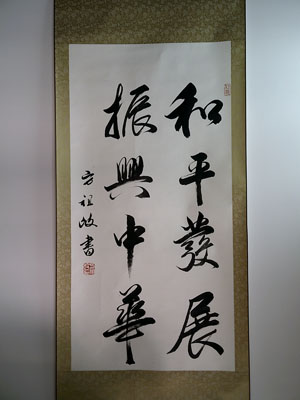 和平發展
振興中華
方祖岐書